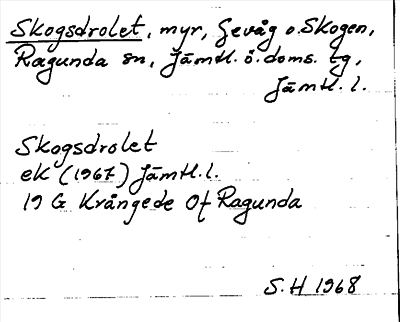 Skogsdrolet, myr, Gevåg o. Skogen,
Ragunda sn, Jämtl. ö. doms. tg,
Jämtl. l.
Skogsdrolet
ek (1967) Jämtl. l.
19 G Krångede Of Ragunda
S. H 1968